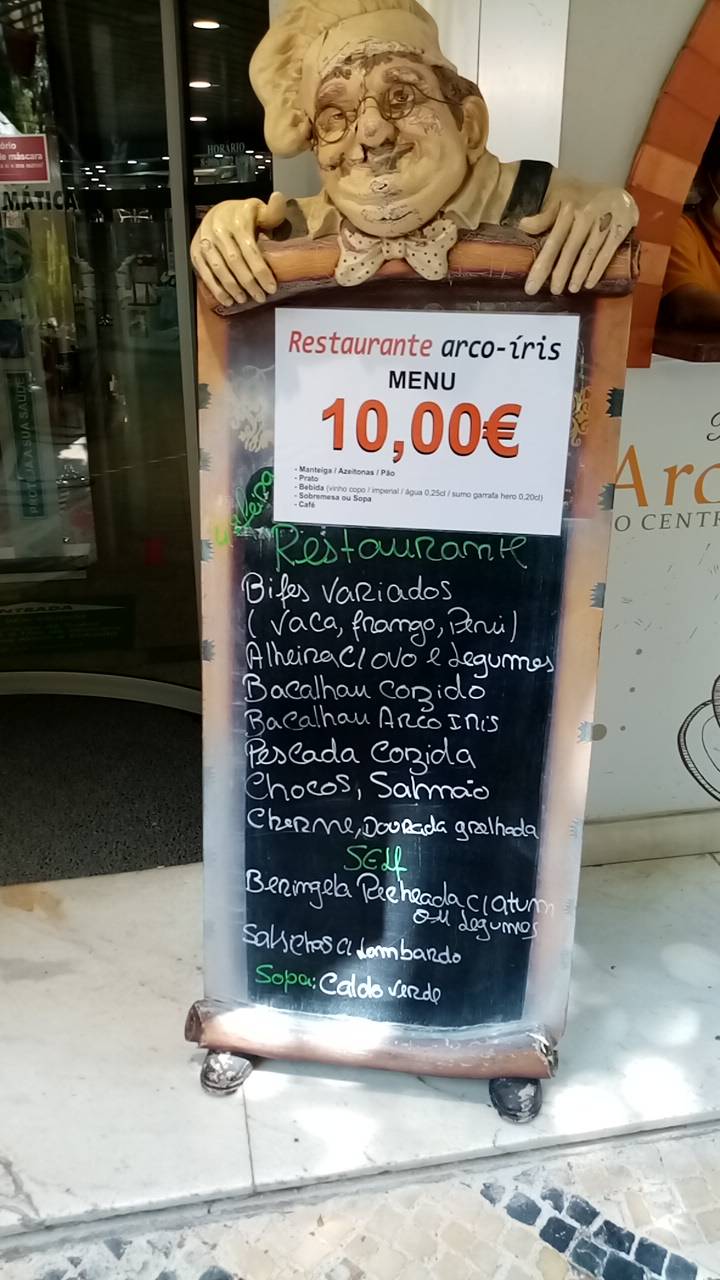 ório
de máscara
MÁTICA
HORÁRIO
PROTEJA A SUA SAÚDE
ENTRADA
Restaurante arco-íris
MENU
10,00€
- Manteiga / Azeitonas / Pão
- Prato
- Bebida (vinho copo / imperial / água 0,25cl / sumo garrafa hero 0,20cl)
- Sobremesa ou Sopa
- Café
Restaurante
Bifes variados
( vaca, frango, Peru)
Alheira C/ ovo e Legumes
Bacalhau cozido
Bacalhau Arco Iris
Pescada cozida
Chocos, Salmão
Cherne, Dourada grelhada
Self
Beringela Recheada c/atum
ou Legumes
Salsichas c/ Lombardo
Sopa: Caldo verde
Arc
O CENTR